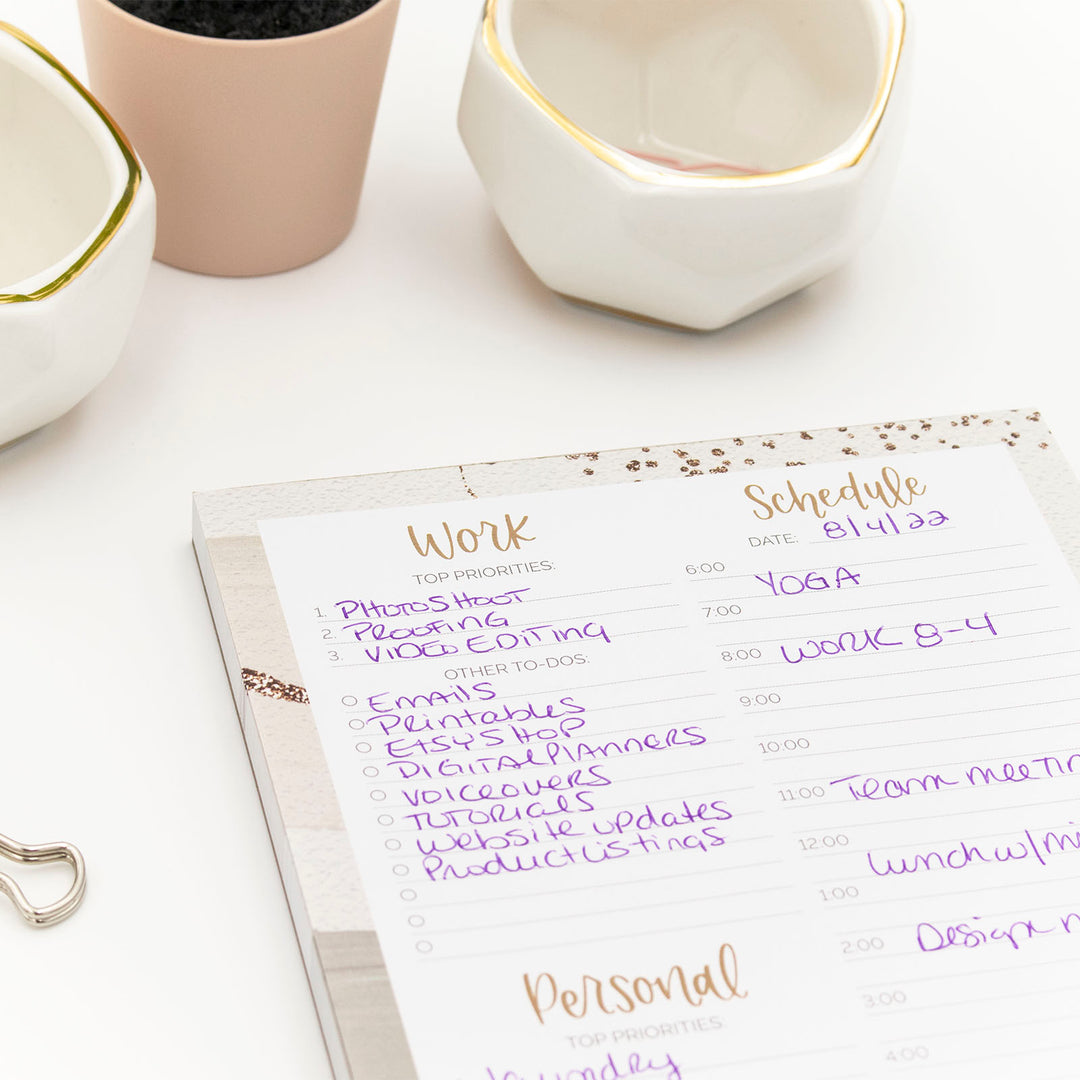 Work
TOP PRIORITIES:
1. PHOTOSHOOT
2. PROOFING
3. VIDEO EDITING
OTHER TO-DOS:
EMAILS
Printables
ETSY SHOP
DIGITAL PLANNERS
VOICEOVERS
TUTORIALS
website updates
Product Listings
Personal
TOP PRIORITIES:
laundry
Schedule
DATE: 8/4/22
6:00 YOGA
7:00
8:00 WORK 8-4
9:00
10:00
11:00 Team meetin
12:00 Lunch w/ mi
1:00
2:00 Design
3:00
4:00